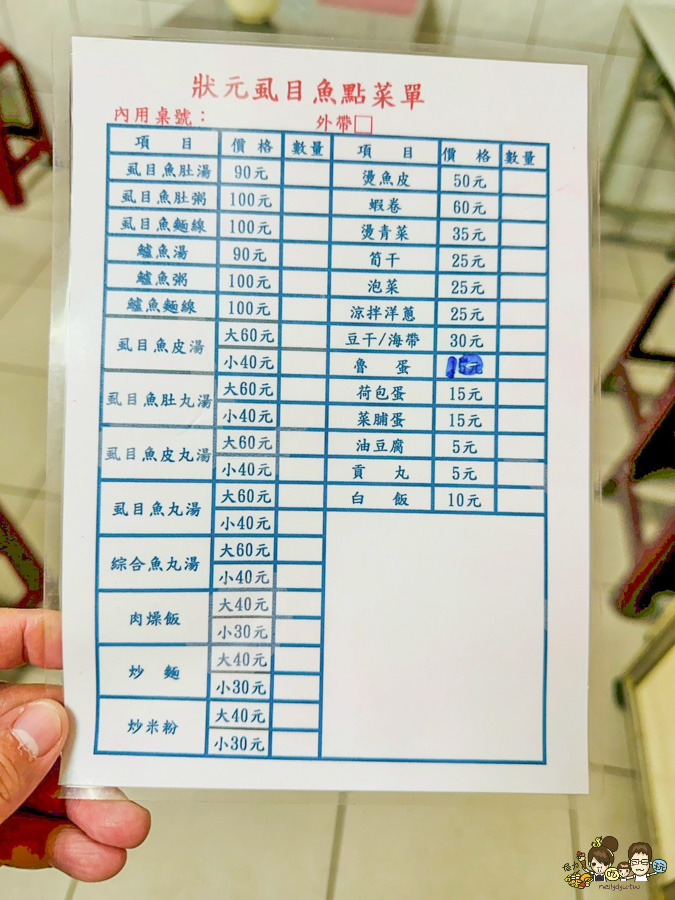 狀元虱目魚點菜單
內用桌號： 外帶□
項目 價格 數量 項目 價格 數量
虱目魚肚湯 90元 燙魚皮 50元
虱目魚肚粥 100元 蝦卷 60元
虱目魚麵線 100元 燙青菜 35元
鱸魚湯 90元 筍干 25元
鱸魚粥 100元 泡菜 25元
鱸魚麵線 100元 涼拌洋蔥 25元
虱目魚皮湯 大60元 豆干/海帶 30元
小40元 魯蛋 15元
虱目魚肚丸湯 大60元 荷包蛋 15元
小40元 菜脯蛋 15元
虱目魚皮丸湯 大60元 油豆腐 5元
小40元 貢丸 5元
虱目魚丸湯 大60元 白飯 10元
小40元
綜合魚丸湯 大60元
小40元
肉燥飯 大40元
小30元
炒麵 大40元
小30元
炒米粉 大40元
小30元